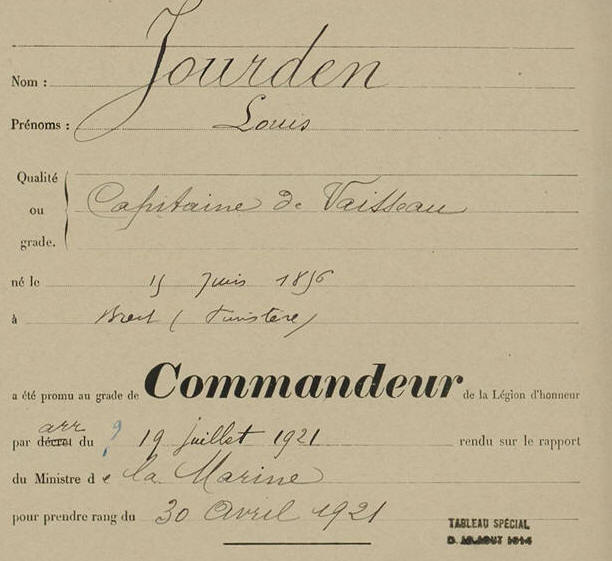 Nom : Jourden
Prénoms : Louis
Qualité
ou
grade.
Capitaine de Vaisseau
né le 15 Juin 1856
à Brest (Finistère)
a été promu au grade de Commandeur de la Légion d'honneur
arr
par décret du ? 19 juillet 1921 rendu sur le rapport
du Ministre de la Marine
pour prendre rang du 30 Avril 1921
TABLEAU SPÉCIAL
D. AOUT 1914